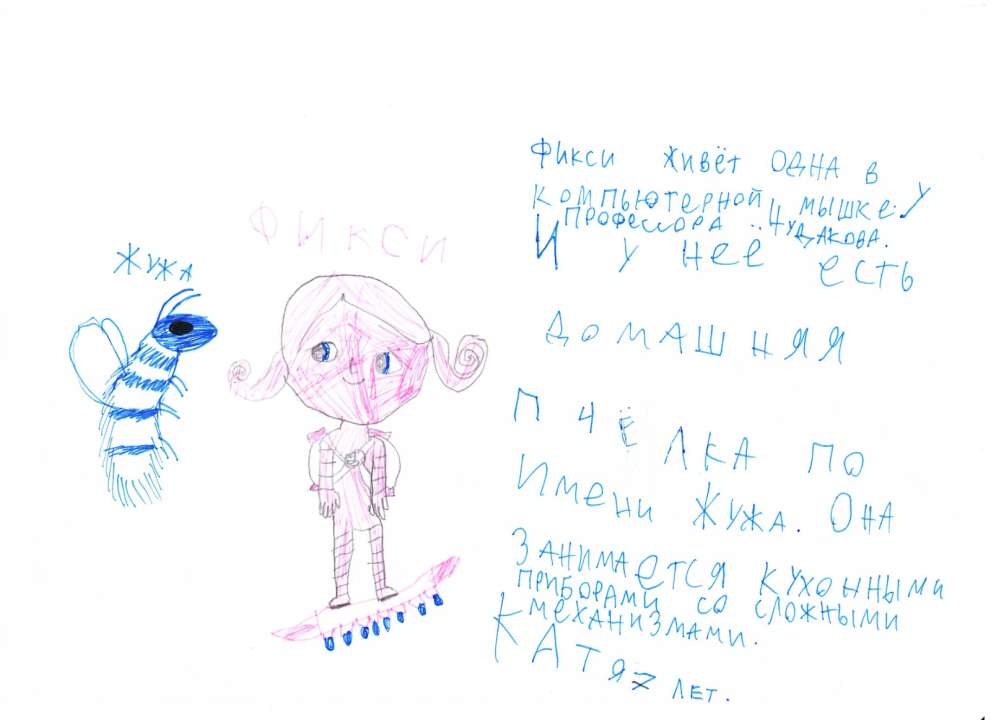 Жужа
Фикси
Фикси живёт одна в
компьютерной мышке у
профессора Чудакова.
И у неё есть
домашняя
пчёлка по
имени Жужа. Она
занимается кухонными
приборами со сложными
механизмами.
Катя 7 лет.